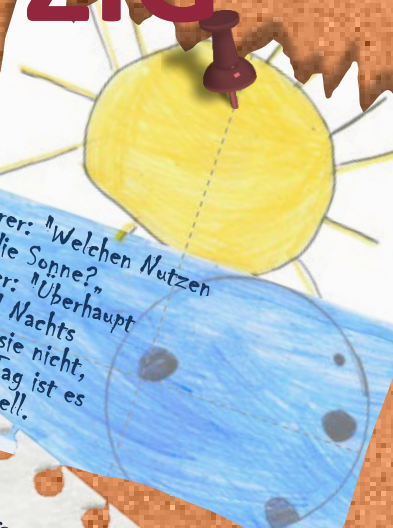 ZIG
rer: "Welchen Nutzen
die Sonne?"
er: "Überhaupt
Nachts
sie nicht,
Tag ist es
ell.